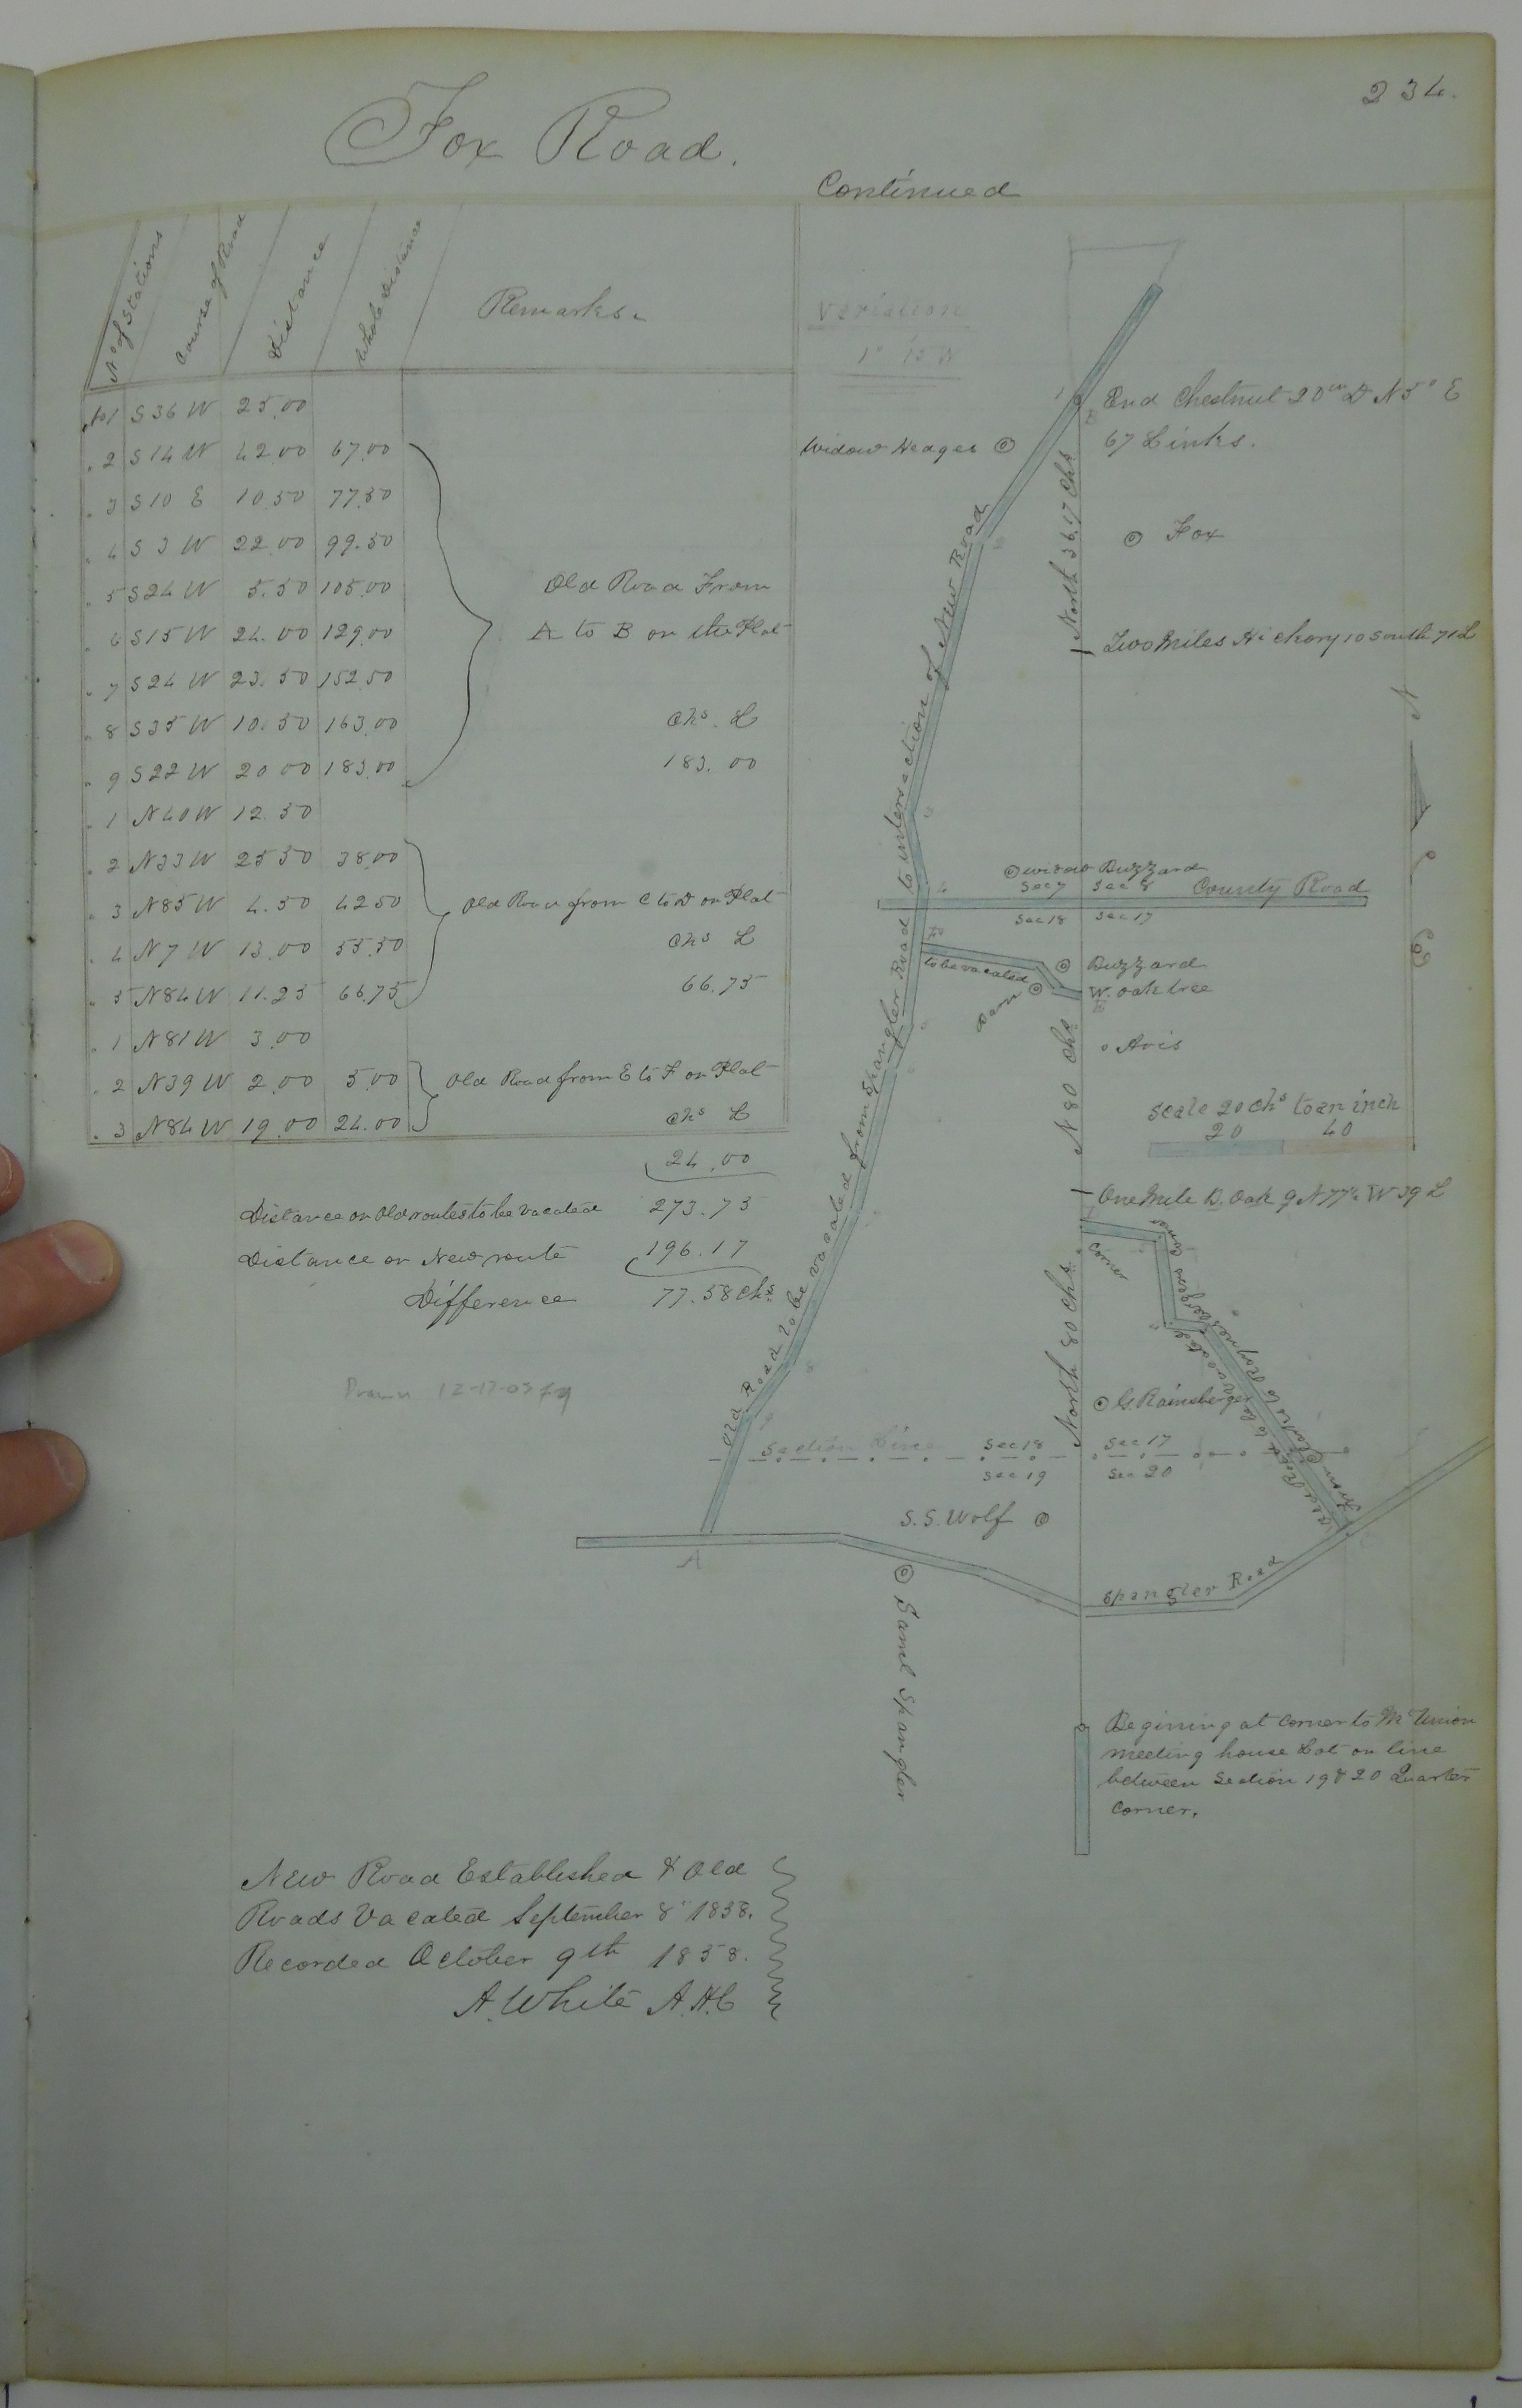 234.
Fox Road.
Continued
No of Stations
Course of Road
Distance
Whole Distance
Remarks.
No 1 S 36 W 25.00
" 2 S 14 W 42.00 67.00
" 3 S 10 E 10.50 77.50
" 4 S 3 W 22.00 99.50
" 5 S 24 W 5.50 105.00
" 6 S 15 W 24.00 129.00
" 7 S 24 W 23.50 152.50
" 8 S 35 W 10.50 163.00
" 9 S 22 W 20.00 183.00
Old Road From
A to B on the Plat
Chs. L
183.00
" 1 N 40 W 12.50
" 2 N 33 W 25.50 38.00
" 3 N 85 W 4.50 42.50
" 4 N 7 W 13.00 55.50
" 5 N 84 W 11.25 66.75
Old Road from C to D on Plat
Chs L
66.75
" 1 N 81 W 3.00
" 2 N 39 W 2.00 5.00
" 3 N 84 W 19.00 24.00
Old Road from E to F on Plat
Chs L
24.00
Distance on Old routes to be Vacated 273.75
Distance on New route 196.17
Difference 77.58 Chs.
Drawn 12-17-03
Variation
1° 15 W
1
B
End Chestnut 20 in D N 5° E
67 Links.
Widow Hedges
2
North 36.17 Chs
Fox
Two Miles Hickory 10 South 71 L
N
3
Widow Buzzard
Sec 7 Sec 8
County Road
4
Sec 18 Sec 17
F
to be vacated
Buzzard
Barn
W. oak tree
E
Avis
5
6
N 80 Chs
Scale 20 Chs to an inch
20 40
One Mile B. Oak 9 N 77½ W 39 L
7
Old Road to be vacated from Spangler Road to intersection of New Road
North 80 Chs.
G. Rainsberger
8
9
Section Line
Sec 18 Sec 17
Sec 19 Sec 20
S. S. Wolf
A
Spangler Road
Saml Spangler
Begining at Corner to Mt Union
meeting house Lot on line
between Section 19 & 20 Quarter
Corner.
New Road Established & Old
Roads Vacated September 8" 1858.
Recorded October 9th 1858.
A. White A.H.C